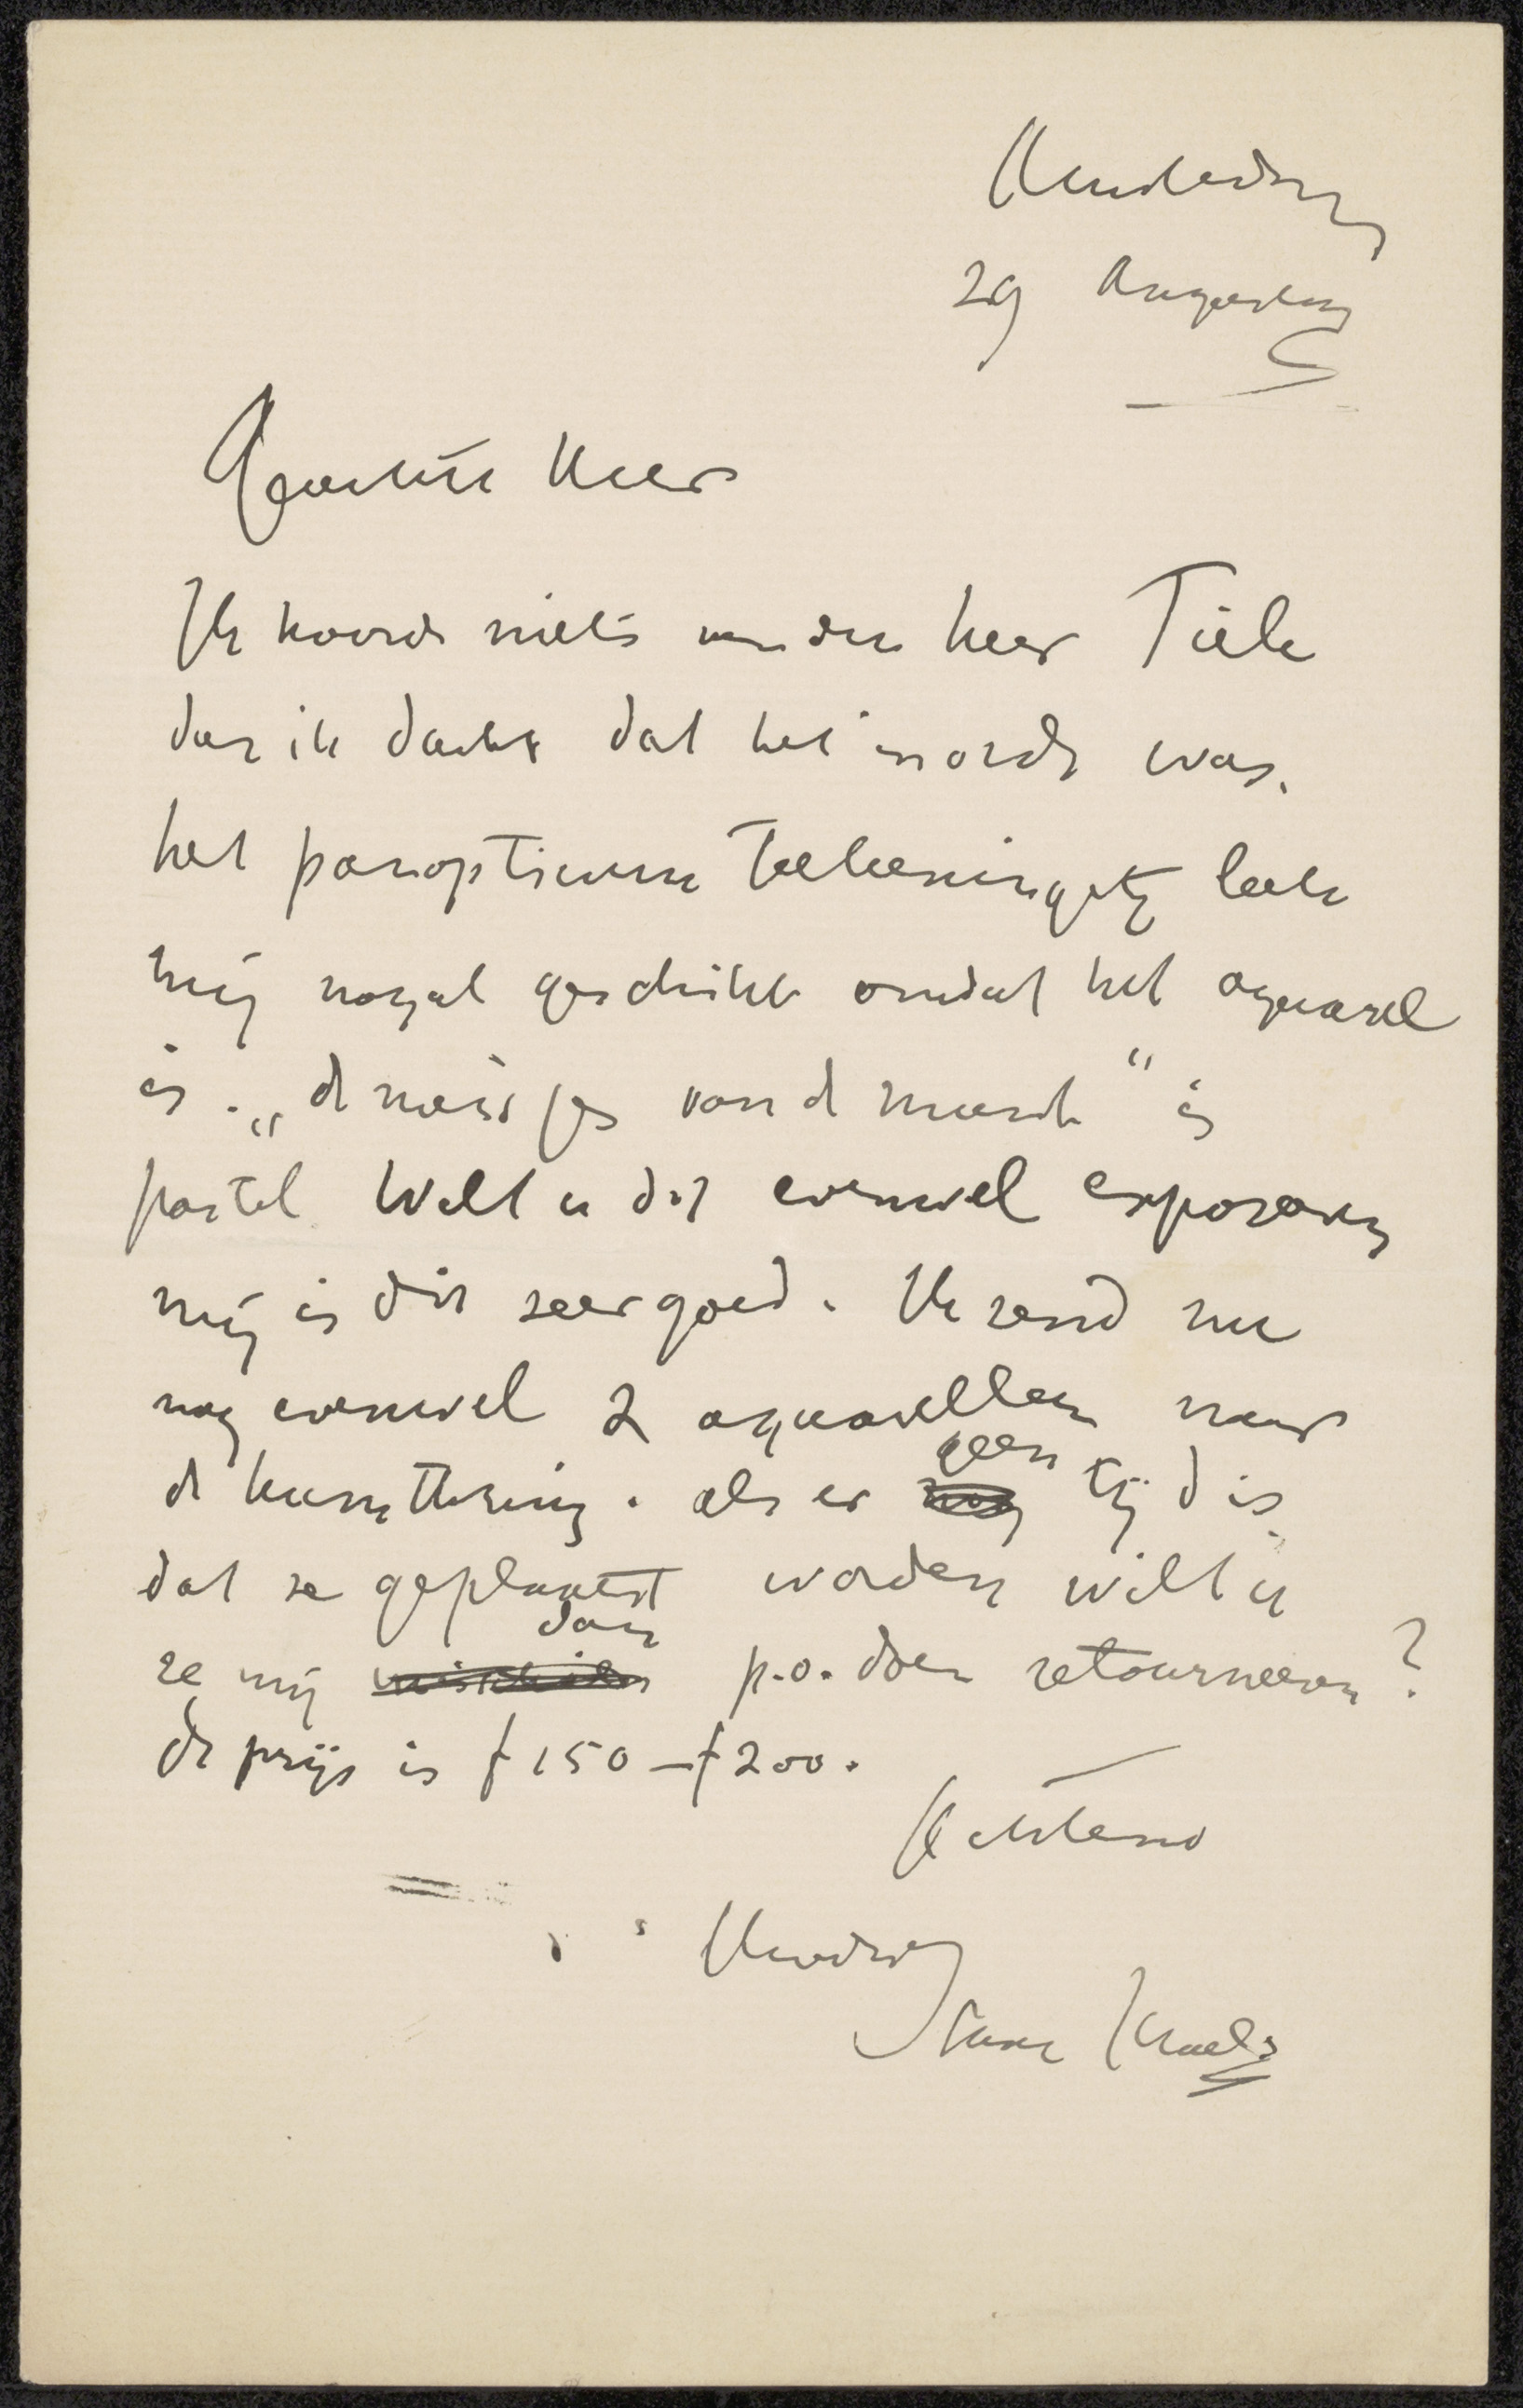 Amsterdam
29 Augustus
Geachte Heer
Ik hoorde niets van den heer Tiele
dus ik dacht dat het in orde was.
het panopticum teekeningetje leek
mij nogal geschikt omdat het aquarel
is. „de meisjes van de mode" is
pastel Wilt u dit evenwel exposeeren
mij is dit zeer goed. Ik zend nu
nog evenwel 2 aquarellen naar
de kunstkring. als er geen tijd is
dat ze geplaatst worden wilt u
ze mij dan p.o. doen retourneeren?
de prijs is f 150 – f 200.
Achtend
Isaac Israels